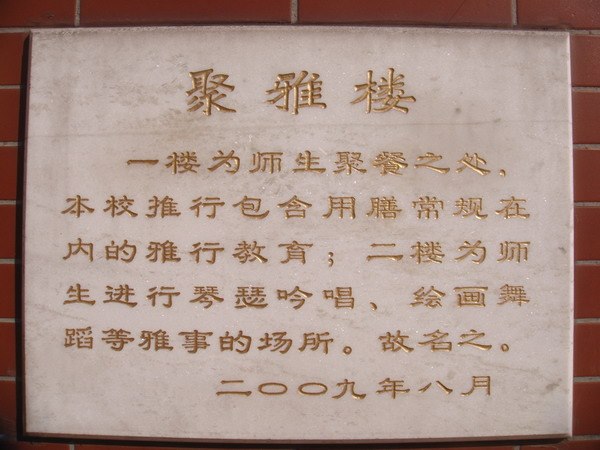 聚雅楼
一楼为师生聚餐之处，
本校推行包含用膳常规在
内的雅行教育；二楼为师
生进行琴瑟吟唱、绘画舞
蹈等雅事的场所。故名之。
二〇〇九年八月